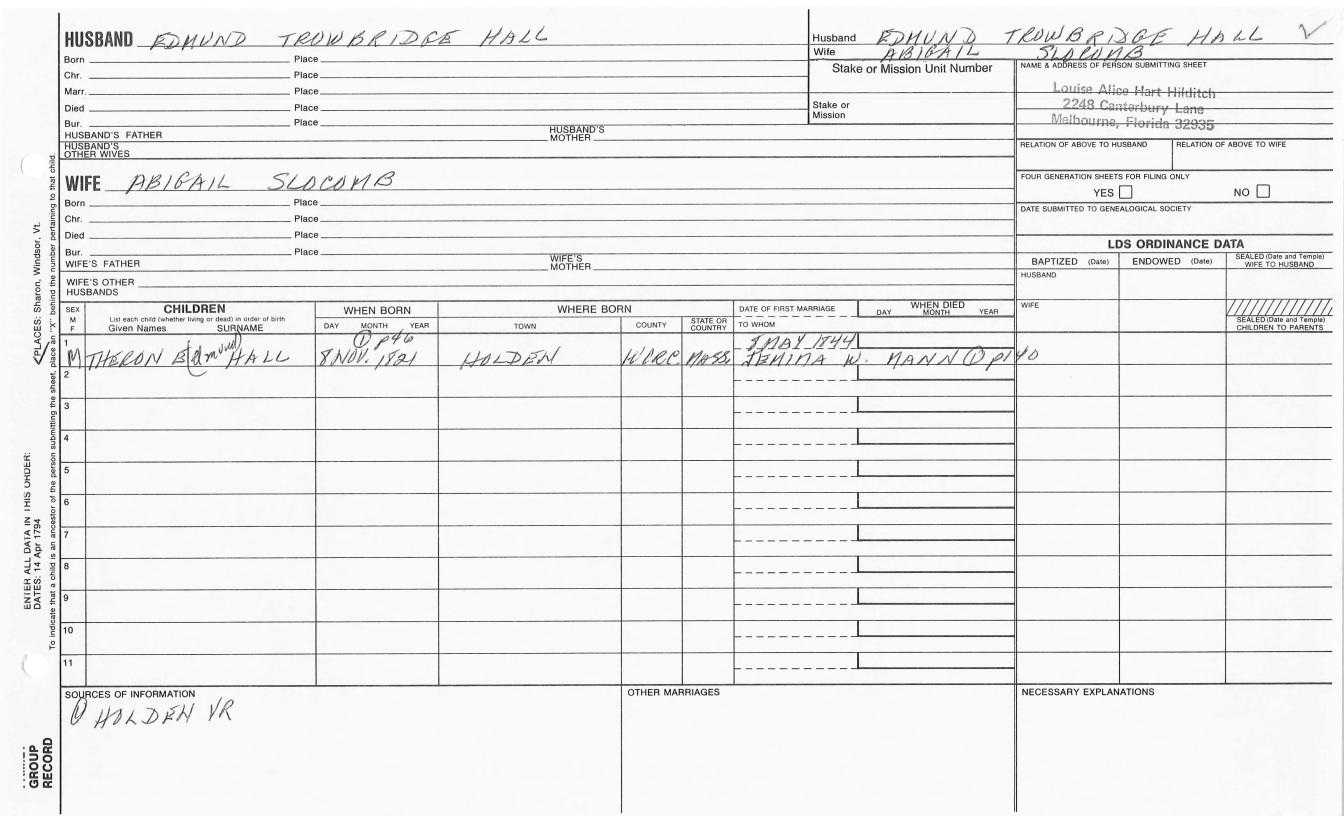 HUSBAND EDMUND TROWBRIDGE HALL
Born Place
Chr. Place
Marr. Place
Died Place
Bur. Place
HUSBAND'S FATHER HUSBAND'S MOTHER
HUSBAND'S OTHER WIVES
Husband EDMUND TROWBRIDGE HALL ✓
Wife ABIGAIL SLOCOMB
Stake or Mission Unit Number
Stake or Mission
NAME & ADDRESS OF PERSON SUBMITTING SHEET
Louise Alice Hart Hilditch
2248 Canterbury Lane
Melbourne, Florida 32935
RELATION OF ABOVE TO HUSBAND RELATION OF ABOVE TO WIFE
FOUR GENERATION SHEETS FOR FILING ONLY
YES NO
DATE SUBMITTED TO GENEALOGICAL SOCIETY
WIFE ABIGAIL SLOCOMB
Born Place
Chr. Place
Died Place
Bur. Place
WIFE'S FATHER WIFE'S MOTHER
WIFE'S OTHER HUSBANDS
LDS ORDINANCE DATA
BAPTIZED (Date) ENDOWED (Date) SEALED (Date and Temple) WIFE TO HUSBAND
HUSBAND
WIFE
SEALED (Date and Temple) CHILDREN TO PARENTS
SEX M F
CHILDREN
List each child (whether living or dead) in order of birth
Given Names SURNAME
WHEN BORN
DAY MONTH YEAR
WHERE BORN
TOWN COUNTY STATE OR COUNTRY
DATE OF FIRST MARRIAGE
TO WHOM
WHEN DIED
DAY MONTH YEAR
1 ① p46 8 MAY 1844
M THERON E(dmund) HALL 8 NOV. 1821 HOLDEN WORC. MASS. JEMIMA W. MANN ① p140
2
3
4
5
6
7
8
9
10
11
SOURCES OF INFORMATION
① HOLDEN VR
OTHER MARRIAGES
NECESSARY EXPLANATIONS
ENTER ALL DATA IN THIS ORDER:
DATES: 14 Apr 1794
PLACES: Sharon, Windsor, Vt.
To indicate that a child is an ancestor of the person submitting the sheet, place an "X" behind the number pertaining to that child.
GROUP
RECORD